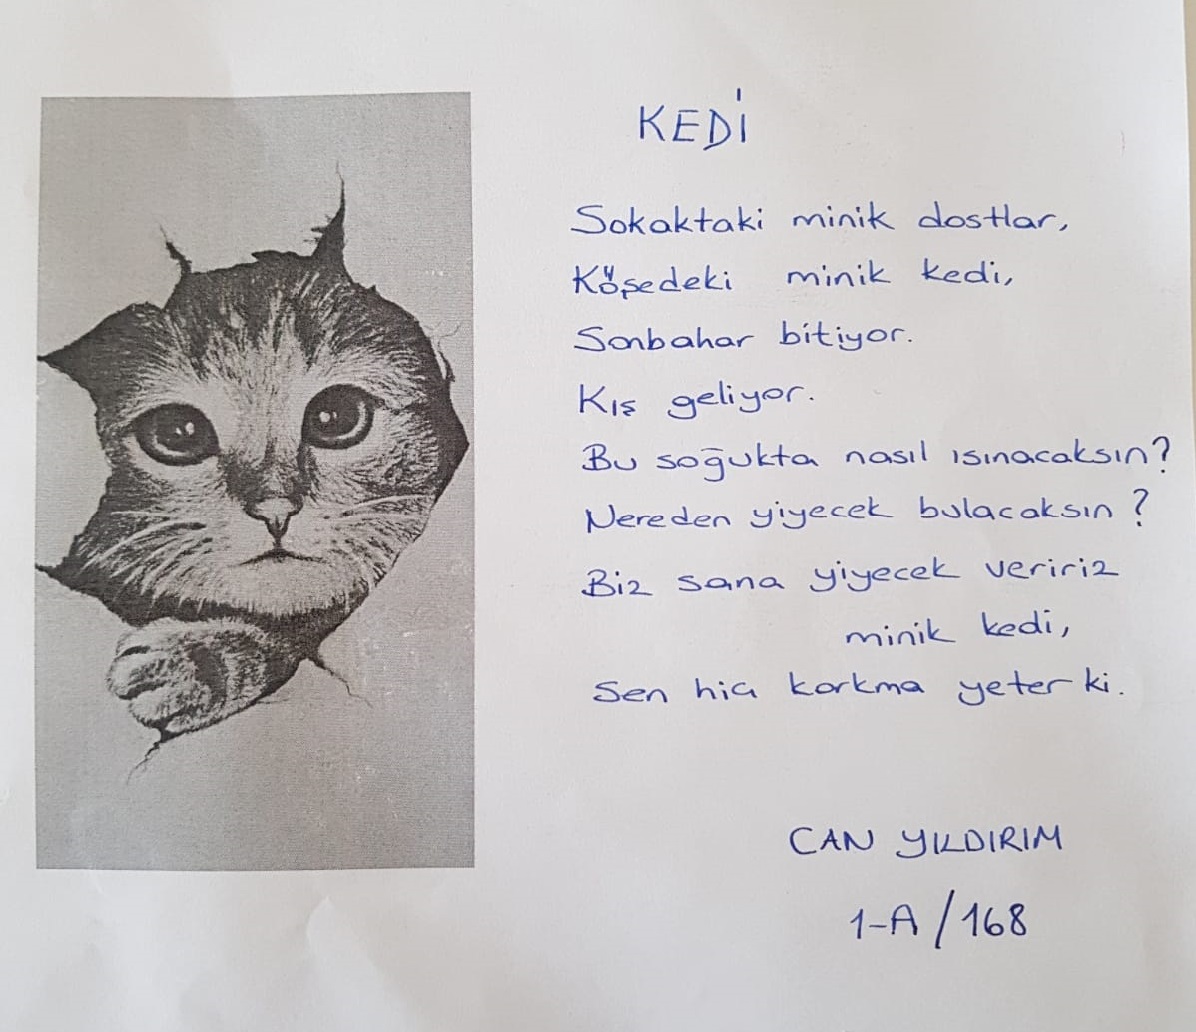 KEDİ
Sokaktaki minik dostlar,
Köşedeki minik kedi,
Sonbahar bitiyor.
Kış geliyor.
Bu soğukta nasıl ısınacaksın?
Nereden yiyecek bulacaksın?
Biz sana yiyecek veririz
minik kedi,
Sen hiç korkma yeter ki.
CAN YILDIRIM
1-A/168